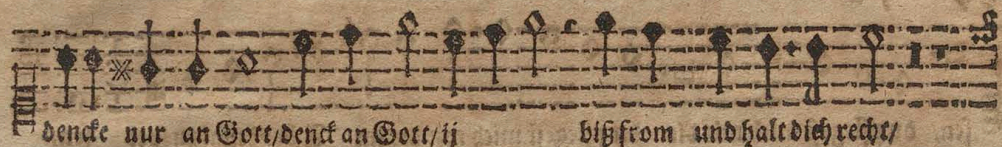 dencke nur an Gott/denck an Gott/ij biß from und halt dich recht/